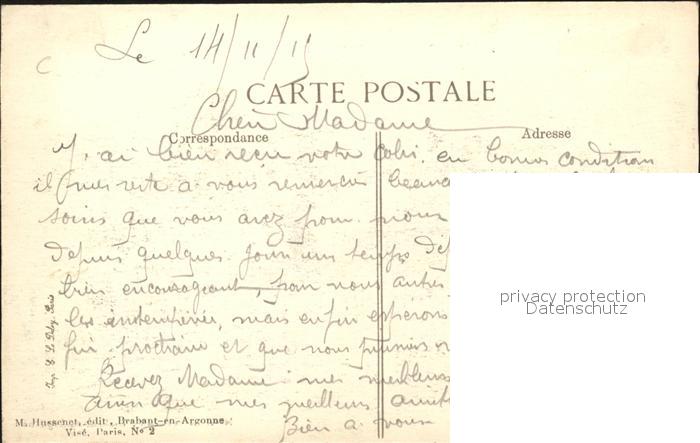 C
Le 14/11/15
CARTE POSTALE
Cher Madame
Correspondance
Adresse
J'ai bien reçu votre colis en bonnes condition
il me reste a vous remercier
soins que vous avez pour nous
depuis quelques jours un temps
très encourageant, pour nous autres
mais enfin espérons
fin prochaine et que nous puissions
Recevez Madame mes meilleurs
ainsi que mes meilleurs
Bien a vous
Imp. E. Le Deley, Paris
M. Hussenet, édit., Brabant-en-Argonne
Visé, Paris, No 2
privacy protection
Datenschutz